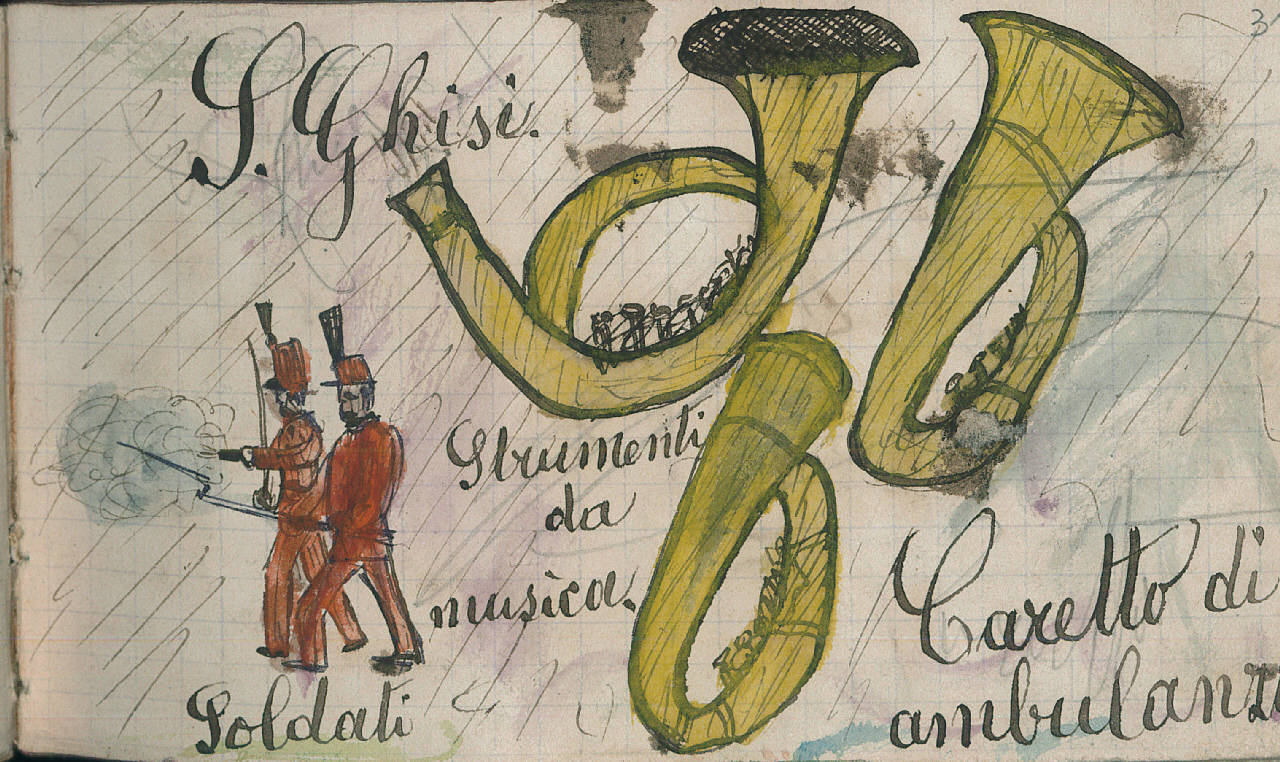 S. Ghisi.
Strumenti
da
musica.
Soldati
Caretto di
ambulanza